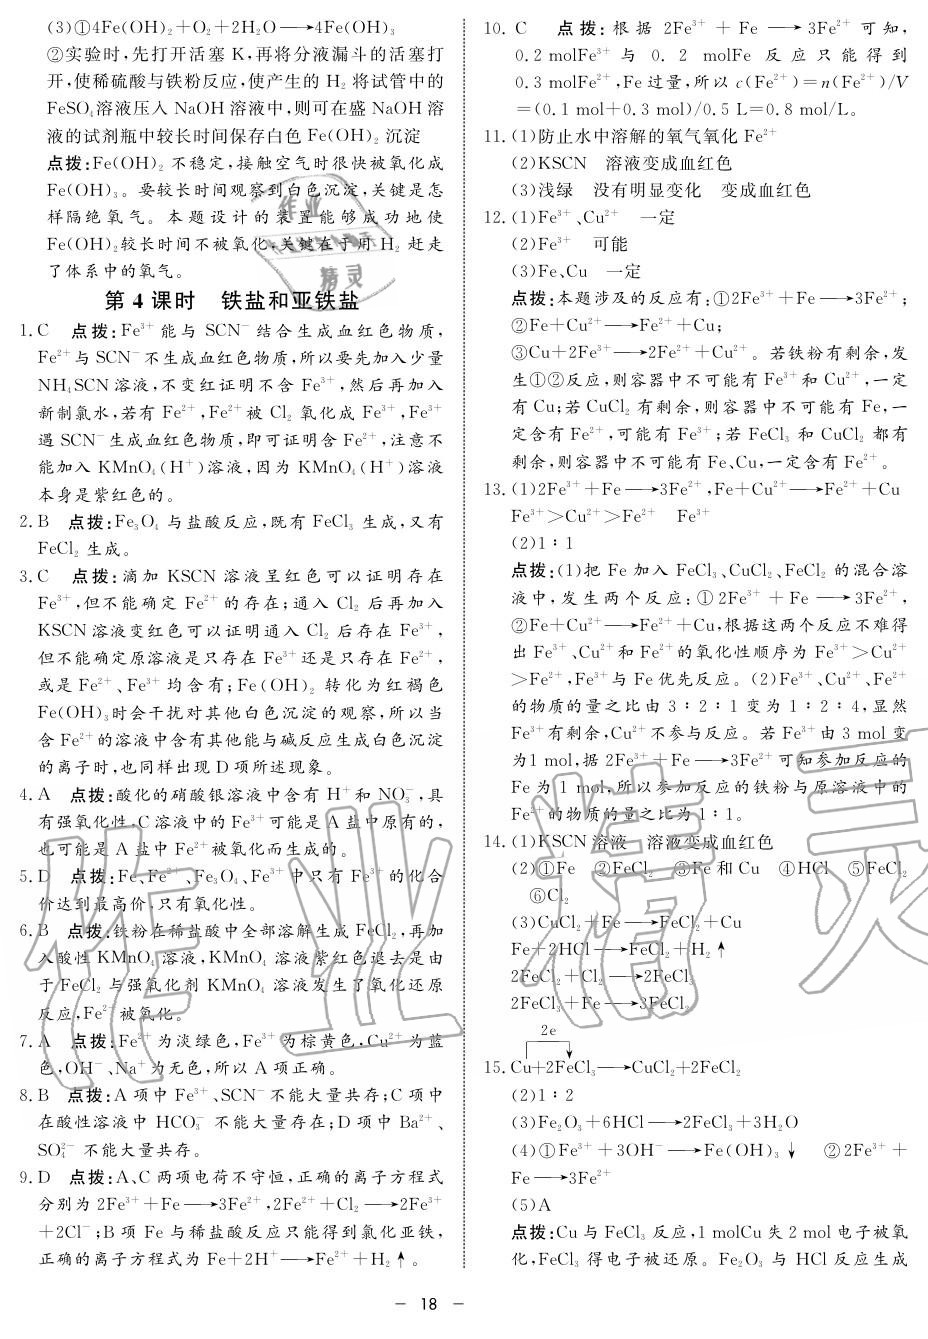 (3)①4Fe(OH)₂+O₂+2H₂O⟶4Fe(OH)₃
②实验时,先打开活塞 K,再将分液漏斗的活塞打
开,使稀硫酸与铁粉反应,使产生的 H₂ 将试管中的
FeSO₄溶液压入 NaOH溶液中,则可在盛 NaOH溶
液的试剂瓶中较长时间保存白色 Fe(OH)₂ 沉淀
点拨:Fe(OH)₂ 不稳定,接触空气时很快被氧化成
Fe(OH)₃。要较长时间观察到白色沉淀,关键是怎
样隔绝氧气。本题设计的装置能够成功地使
Fe(OH)₂较长时间不被氧化,关键在于用 H₂ 赶走
了体系中的氧气。
第 4 课时 铁盐和亚铁盐
1. C 点拨:Fe³⁺ 能与 SCN⁻ 结合生成血红色物质,
Fe²⁺与 SCN⁻不生成血红色物质,所以要先加入少量
NH₄SCN溶液,不变红证明不含 Fe³⁺,然后再加入
新制氯水,若有 Fe²⁺,Fe²⁺被 Cl₂ 氧化成 Fe³⁺,Fe³⁺
遇 SCN⁻生成血红色物质,即可证明含 Fe²⁺,注意不
能加入 KMnO₄(H⁺)溶液,因为 KMnO₄(H⁺)溶液
本身是紫红色的。
2. B 点拨:Fe₃O₄ 与盐酸反应,既有 FeCl₃ 生成,又有
FeCl₂ 生成。
3. C 点拨:滴加 KSCN 溶液呈红色可以证明存在
Fe³⁺,但不能确定 Fe²⁺的存在;通入 Cl₂ 后再加入
KSCN溶液变红色可以证明通入 Cl₂ 后存在 Fe³⁺,
但不能确定原溶液是只存在 Fe³⁺还是只存在 Fe²⁺,
或是 Fe²⁺、Fe³⁺ 均含有;Fe(OH)₂ 转化为红褐色
Fe(OH)₃时会干扰对其他白色沉淀的观察,所以当
含 Fe²⁺的溶液中含有其他能与碱反应生成白色沉淀
的离子时,也同样出现 D项所述现象。
4. A 点拨:酸化的硝酸银溶液中含有 H⁺和 NO₃⁻,具
有强氧化性,C溶液中的 Fe³⁺可能是 A盐中原有的,
也可能是 A 盐中 Fe²⁺被氧化而生成的。
5. D 点拨:Fe、Fe²⁺、Fe₃O₄、Fe³⁺中只有 Fe³⁺的化合
价达到最高价,只有氧化性。
6. B 点拨:铁粉在稀盐酸中全部溶解生成 FeCl₂,再加
入酸性 KMnO₄ 溶液,KMnO₄ 溶液紫红色退去是由
于 FeCl₂ 与强氧化剂 KMnO₄ 溶液发生了氧化还原
反应,Fe²⁺被氧化。
7. A 点拨:Fe²⁺为淡绿色,Fe³⁺为棕黄色,Cu²⁺为蓝
色,OH⁻、Na⁺为无色,所以 A项正确。
8. B 点拨:A项中 Fe³⁺、SCN⁻不能大量共存;C项中
在酸性溶液中 HCO₃⁻ 不能大量存在;D项中 Ba²⁺、
SO₄²⁻ 不能大量共存。
9. D 点拨:A、C两项电荷不守恒,正确的离子方程式
分别为 2Fe³⁺+Fe⟶3Fe²⁺,2Fe²⁺+Cl₂⟶2Fe³⁺
+2Cl⁻;B项 Fe 与稀盐酸反应只能得到氯化亚铁,
正确的离子方程式为 Fe+2H⁺⟶Fe²⁺+H₂↑。
10. C 点拨:根据 2Fe³⁺ + Fe ⟶ 3Fe²⁺ 可知,
0.2 molFe³⁺ 与 0. 2 molFe 反应只能得到
0.3 molFe²⁺,Fe过量,所以 c(Fe²⁺)=n(Fe²⁺)/V
=(0.1 mol+0.3 mol)/0.5 L=0.8 mol/L。
11. (1)防止水中溶解的氧气氧化 Fe²⁺
(2)KSCN 溶液变成血红色
(3)浅绿 没有明显变化 变成血红色
12. (1)Fe³⁺、Cu²⁺ 一定
(2)Fe³⁺ 可能
(3)Fe、Cu 一定
点拨:本题涉及的反应有:①2Fe³⁺+Fe⟶3Fe²⁺;
②Fe+Cu²⁺⟶Fe²⁺+Cu;
③Cu+2Fe³⁺⟶2Fe²⁺+Cu²⁺。若铁粉有剩余,发
生①②反应,则容器中不可能有 Fe³⁺和 Cu²⁺,一定
有 Cu;若 CuCl₂ 有剩余,则容器中不可能有 Fe,一
定含有 Fe²⁺,可能有 Fe³⁺;若 FeCl₃ 和 CuCl₂ 都有
剩余,则容器中不可能有 Fe、Cu,一定含有 Fe²⁺。
13. (1)2Fe³⁺+Fe⟶3Fe²⁺,Fe+Cu²⁺⟶Fe²⁺+Cu
Fe³⁺>Cu²⁺>Fe²⁺ Fe³⁺
(2)1∶1
点拨:(1)把 Fe 加入 FeCl₃、CuCl₂、FeCl₂ 的混合溶
液中,发生两个反应:①2Fe³⁺ + Fe ⟶ 3Fe²⁺,
②Fe+Cu²⁺⟶Fe²⁺+Cu,根据这两个反应不难得
出 Fe³⁺、Cu²⁺和 Fe²⁺的氧化性顺序为 Fe³⁺>Cu²⁺
>Fe²⁺,Fe³⁺与 Fe优先反应。(2)Fe³⁺、Cu²⁺、Fe²⁺
的物质的量之比由 3∶2∶1 变为 1∶2∶4,显然
Fe³⁺有剩余,Cu²⁺不参与反应。若 Fe³⁺由 3 mol变
为1 mol,据 2Fe³⁺+Fe⟶3Fe²⁺可知参加反应的
Fe为 1 mol,所以参加反应的铁粉与原溶液中的
Fe³⁺的物质的量之比为 1∶1。
14. (1)KSCN溶液 溶液变成血红色
(2)①Fe ②FeCl₂ ③Fe和 Cu ④HCl ⑤FeCl₃
⑥Cl₂
(3)CuCl₂+Fe⟶FeCl₂+Cu
Fe+2HCl⟶FeCl₂+H₂↑
2FeCl₂+Cl₂⟶2FeCl₃
2FeCl₃+Fe⟶3FeCl₂
2e
15. Cu+2FeCl₃⟶CuCl₂+2FeCl₂
(2)1∶2
(3)Fe₂O₃+6HCl⟶2FeCl₃+3H₂O
(4)①Fe³⁺+3OH⁻⟶Fe(OH)₃↓ ②2Fe³⁺+
Fe⟶3Fe²⁺
(5)A
点拨:Cu与 FeCl₃ 反应,1 molCu失 2 mol电子被氧
化,FeCl₃ 得电子被还原。Fe₂O₃ 与 HCl反应生成
– 18 –
作业精灵